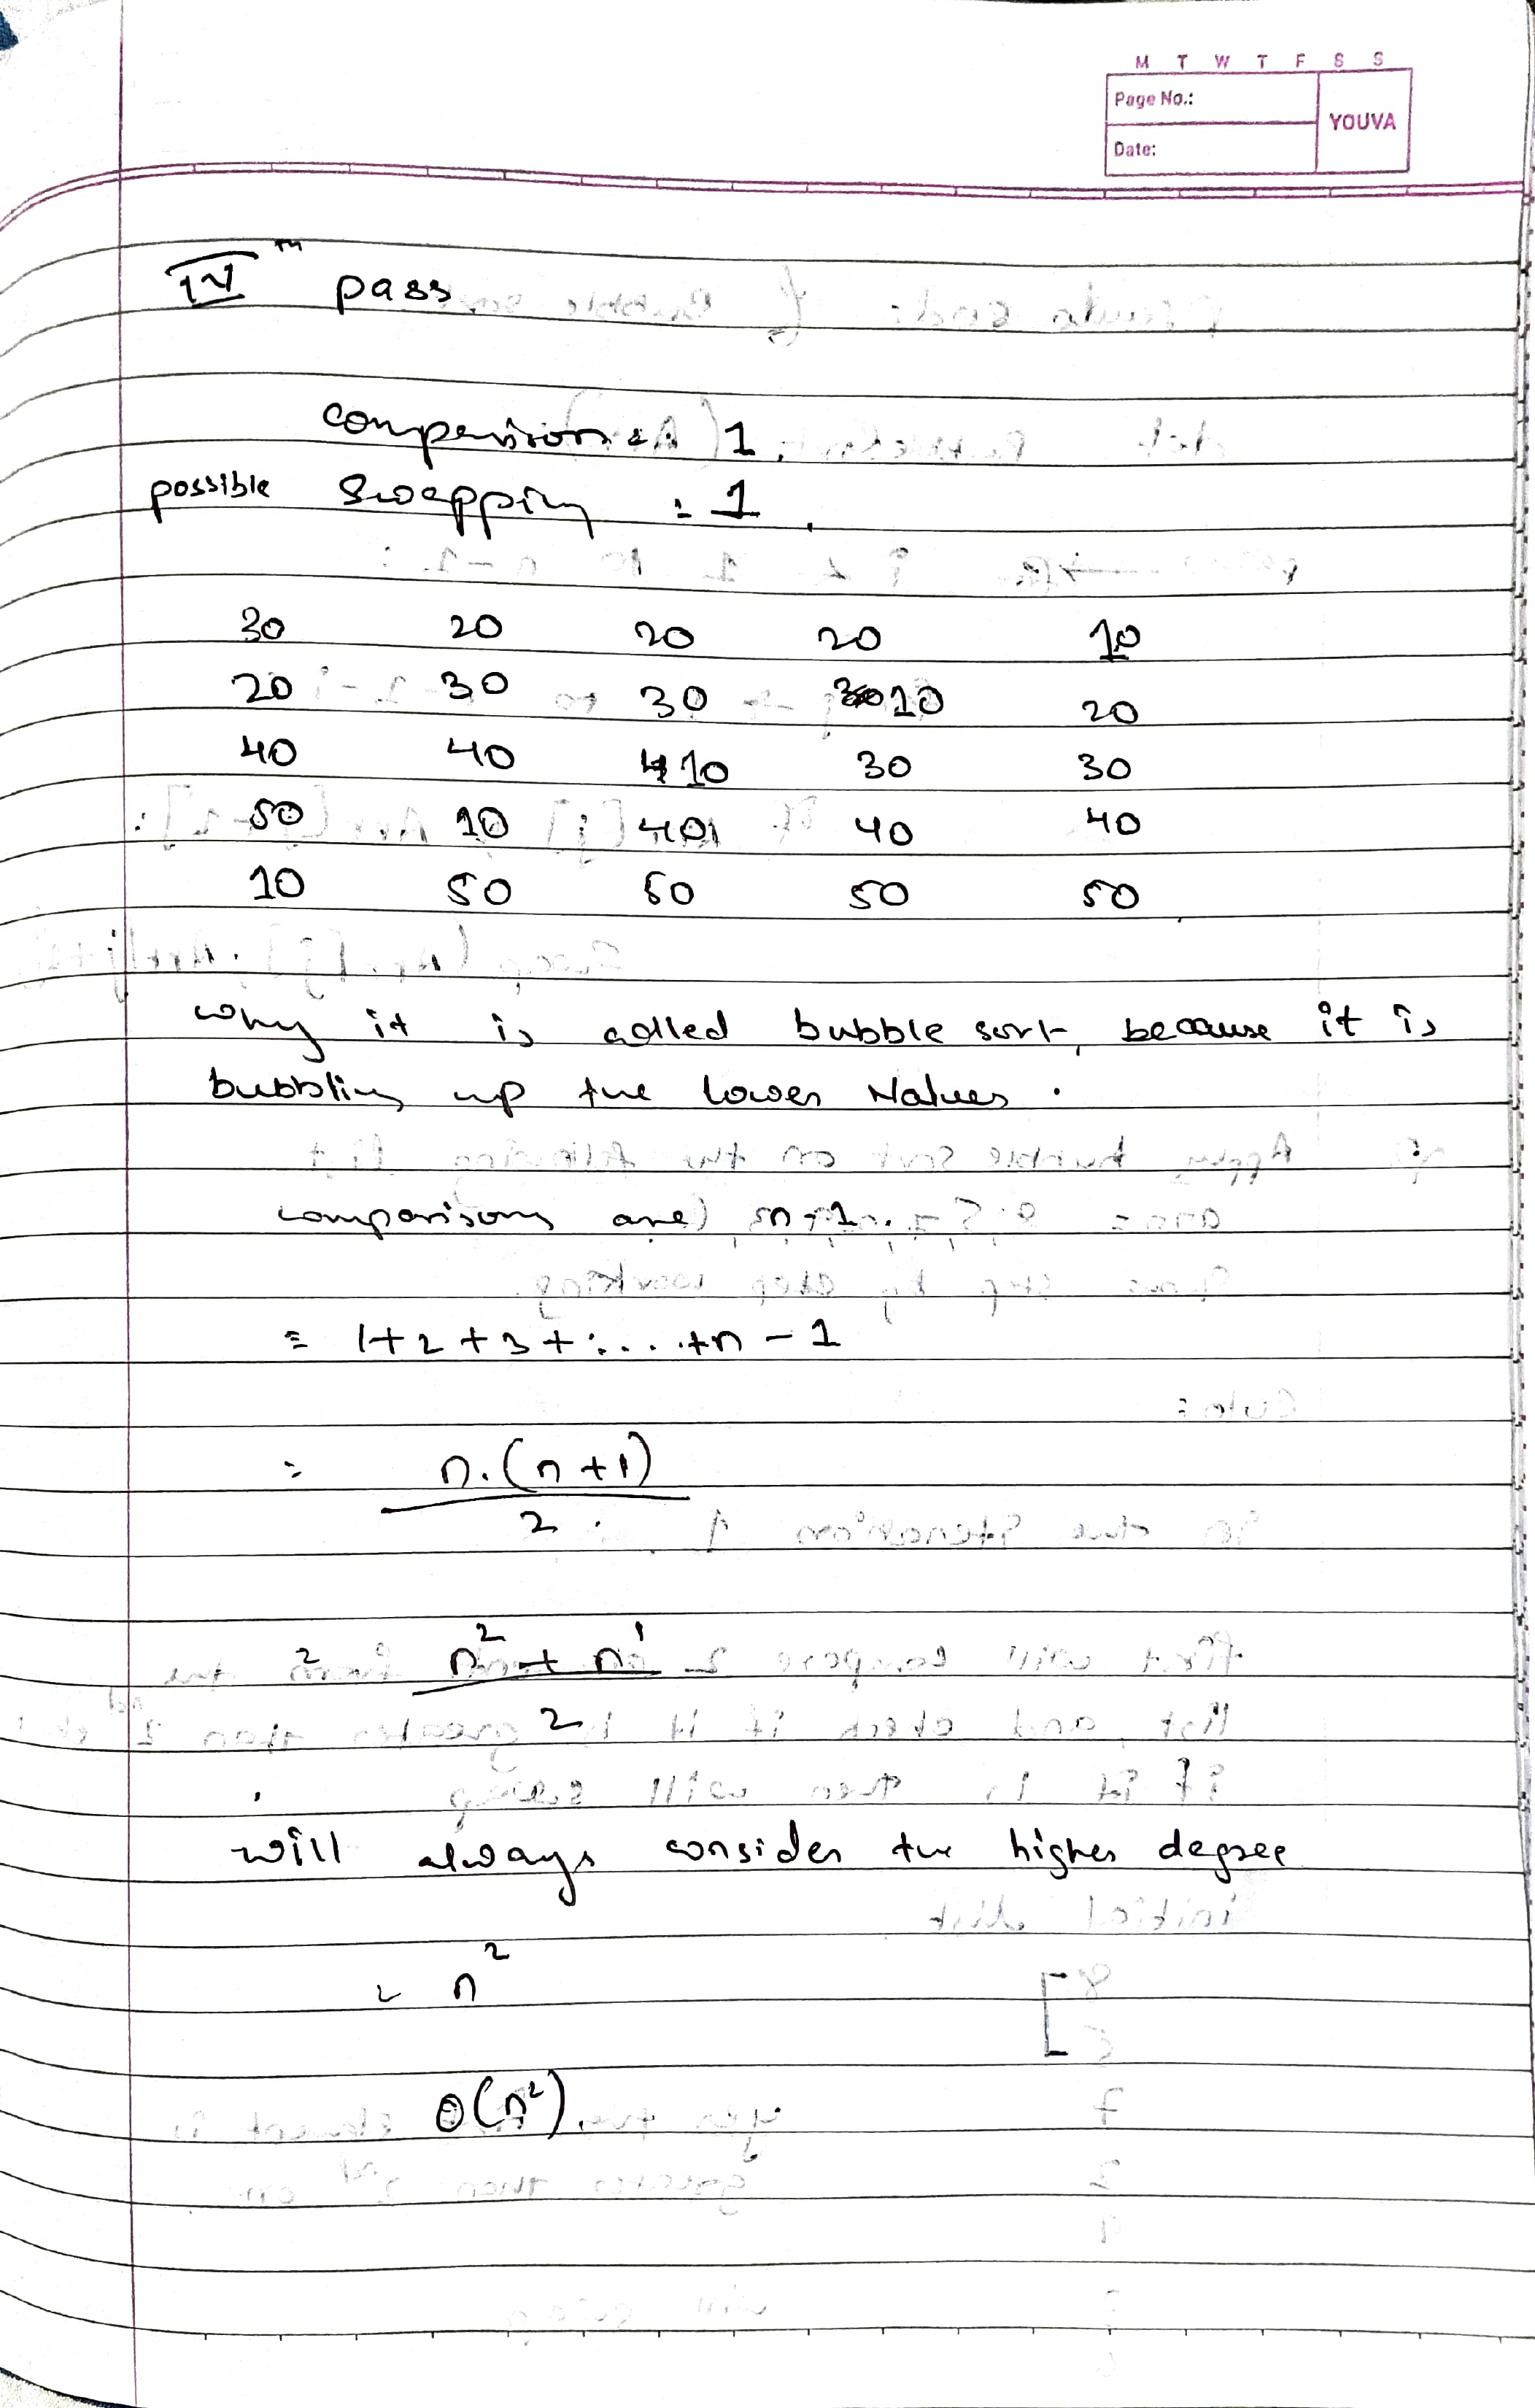 M T W T F S S
Page No.:
YOUVA
Date:
IV th pass
comperisons = 1
possible Swapping = 1.
30 20 20 20 10
20 30 30 10 20
40 40 10 30 30
50 10 40 40 40
10 50 50 50 50
why it is called bubble sort, because it is
bubbling up the lower values.
comparisons are n-1.
= 1+2+3+....+n-1
= n.(n+1)
2.
= n² + n¹
2
will always consider the higher degree
= n²
Θ(n²).